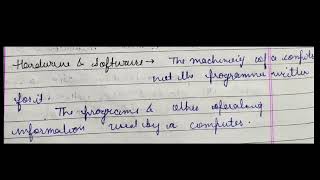 Hardware & Software → The machinery of a compute
not the programme written
for it.
The programs & other operating
information used by a computer.